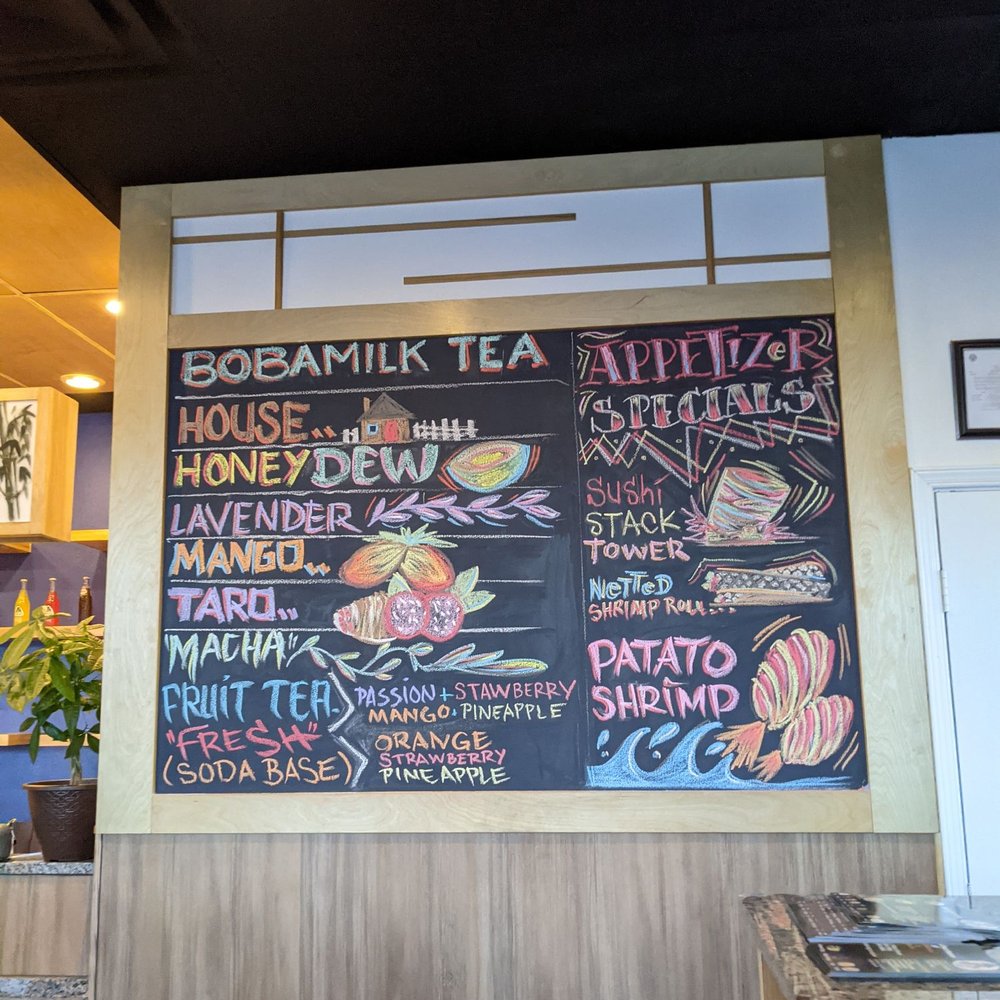 BOBA MILK TEA
HOUSE..
HONEYDEW
LAVENDER
MANGO..
TARO..
"MACHA"
FRUIT TEA
PASSION + STAWBERRY
MANGO + PINEAPPLE
"FRESH"
(SODA BASE)
ORANGE
STRAWBERRY
PINEAPPLE
APPETIZER
SPECIALS
SUSHI
STACK
TOWER
NETTED
SHRIMP ROLL...
PATATO
SHRIMP